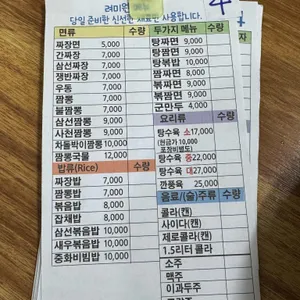 려미원 메뉴
당일 준비한 신선한 재료만 사용합니다.
4
면류 수량
짜장면 5,000
간짜장 7,000
삼선짜장 7,000
쟁반짜장 7,000
우동 7,000
짬뽕 7,000
불짬뽕 7,000
삼선짬뽕 9,000
사천짬뽕 9,000
차돌박이짬뽕 10,000
짬뽕국물 12,000
밥류(Rice) 수량
짜장밥 7,000
짬뽕밥 7,000
볶음밥 8,000
잡채밥 8,000
삼선볶음밥 10,000
새우볶음밥 10,000
중화비빔밥 10,000
두가지 메뉴 수량
탕짜면 9,000
탕짬면 9,000
탕볶밥 10,000
짬짜면 8,000
볶짜면 9,000
볶짬면 9,000
군만두 4,000
요리류 수량
탕수육 소17,000
(현금가 10,000
포장비별도)
탕수육 중22,000
탕수육 대27,000
깐풍육 25,000
음료/(술)주류 수량
콜라(캔)
사이다(캔)
제로콜라(캔)
1.5리터 콜라
소주
맥주
이과두주